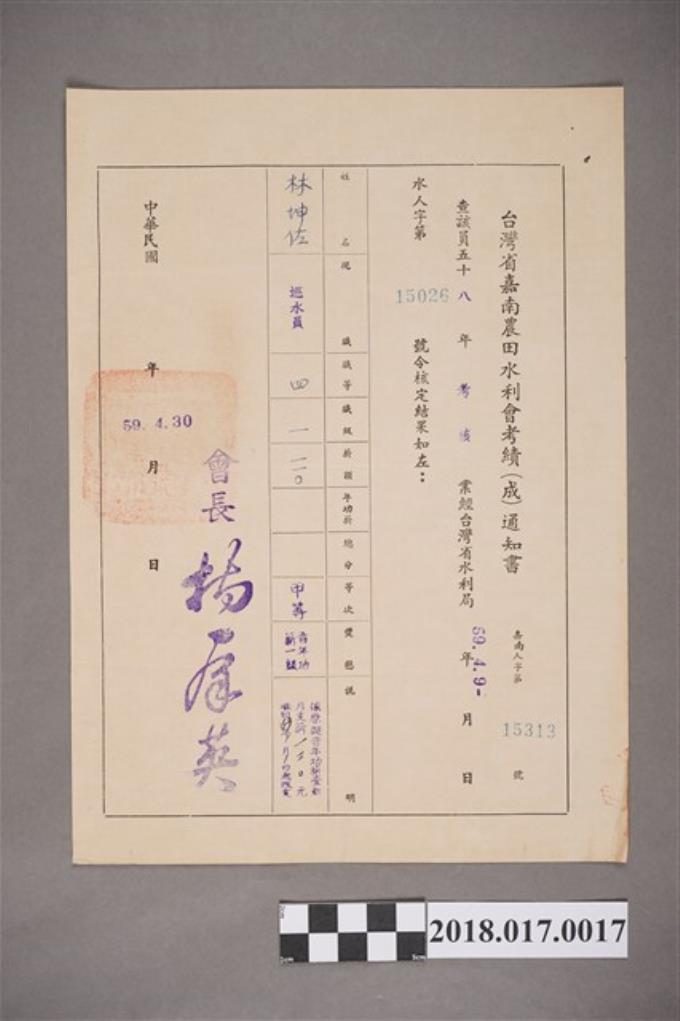 台灣省嘉南農田水利會考績(成)通知書
嘉南人字第 15313 號
查該員五十八年 考核 業經台灣省水利局 59.4.9- 年 月 日
水人字第 15026 號令核定結果如左：
姓名 現職 職等 職級 薪額 年功薪 總分 等次 獎懲 說明
林坤佐 巡水員 四 一 一一〇 甲等 晉年功薪一級
會長 楊群英
中華民國 年 月 日
59.4.30
2018.017.0017
2cm
0cm
5cm